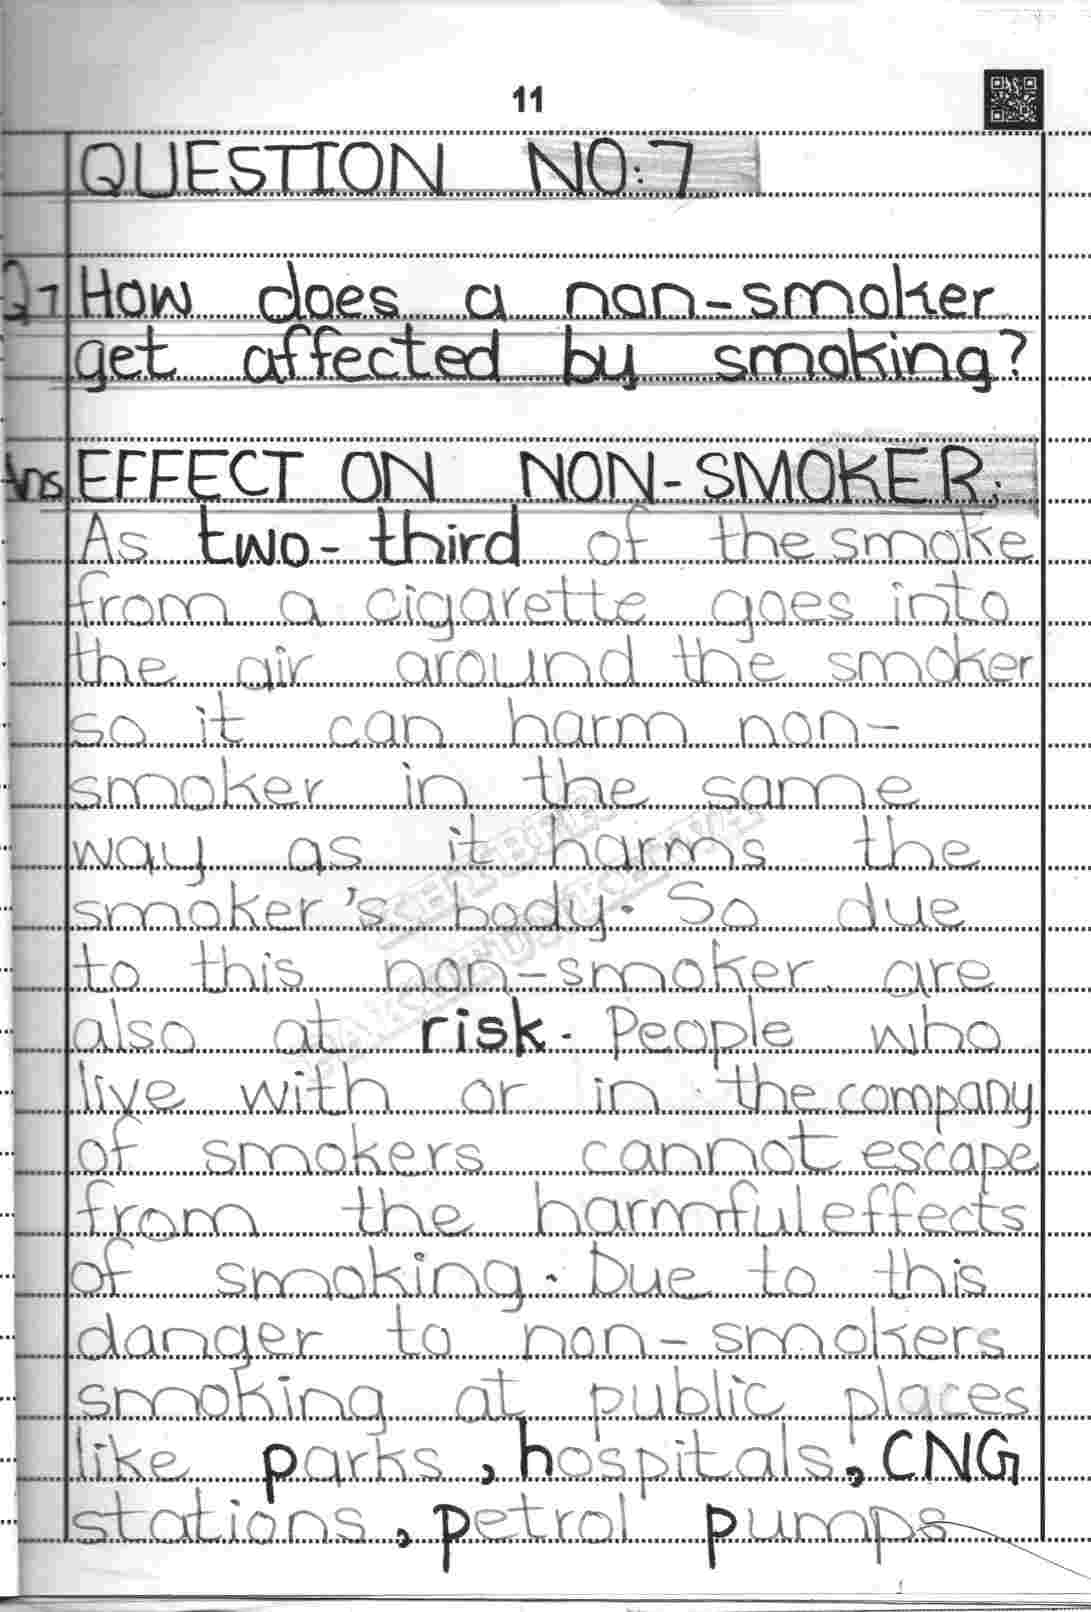 11
QUESTION NO:7
Q7 How does a non-smoker
get affected by smoking?
Ans EFFECT ON NON-SMOKER:
As two-third of the smoke
from a cigarette goes into
the air around the smoker
so it can harm non-
smoker in the same
way as it harms the
smoker's body. So due
to this non-smoker are
also at risk. People who
live with or in the company
of smokers cannot escape
from the harmful effects
of smoking. Due to this
danger to non-smokers
smoking at public places
like parks, hospitals, CNG
stations, petrol pumps